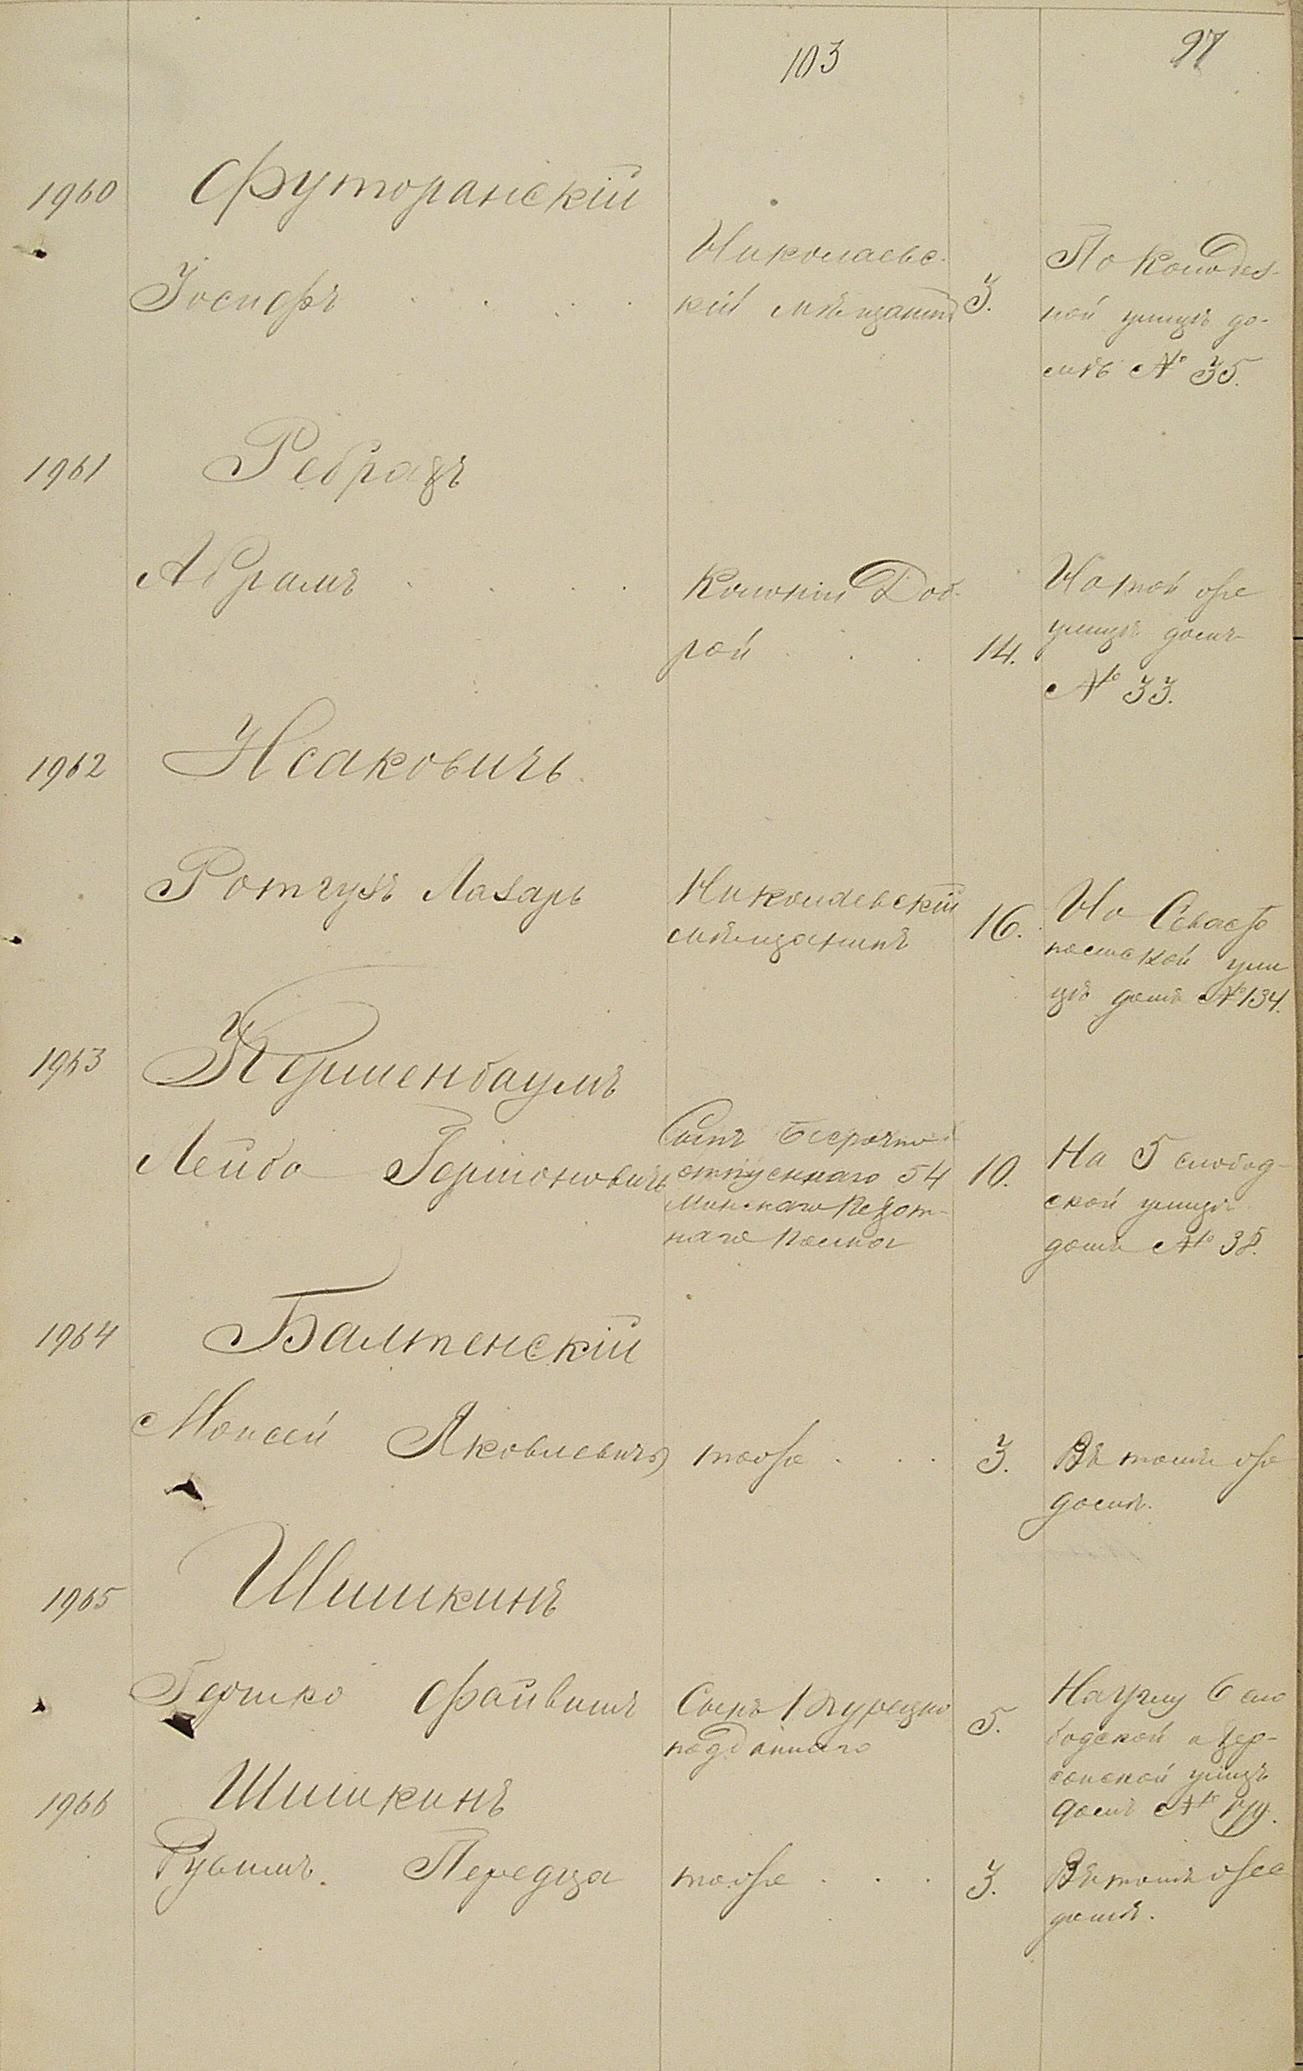 103
97
1960
Футоранскій
Іосифъ
Николаевс-
кій мѣщанинъ
3.
По Колодез-
ной улицѣ до-
мъ № 35.
1961
Ребразъ
Абрамъ
Колоніи Доб-
рой
14.
На той же
улицѣ домъ
№ 33.
1962
Исаковичъ
Лазарь
Николаевскій
мѣщанинъ
16.
На Севасто
польской ули
цѣ домъ № 134.
1963
Кершенбаумъ
Лейба Гершоновичъ
Сынъ безсрочно
отпускнаго 54
Минскаго Пехот-
наго полка
10.
На 5 слобод-
ской улицѣ
домъ № 38.
1964
Балтенскій
Моисей Яковлевичъ
тоже
3.
Въ томъ же
домѣ.
1965
Шишкинъ
Гершко Файвишъ
Сынъ Турецко
подданнаго
5.
На углу 6 сло
бодской и Хер-
сонской улицъ
домъ №
1966
Шишкинъ
Рувимъ
тоже
3.
Въ томъ же
домѣ.